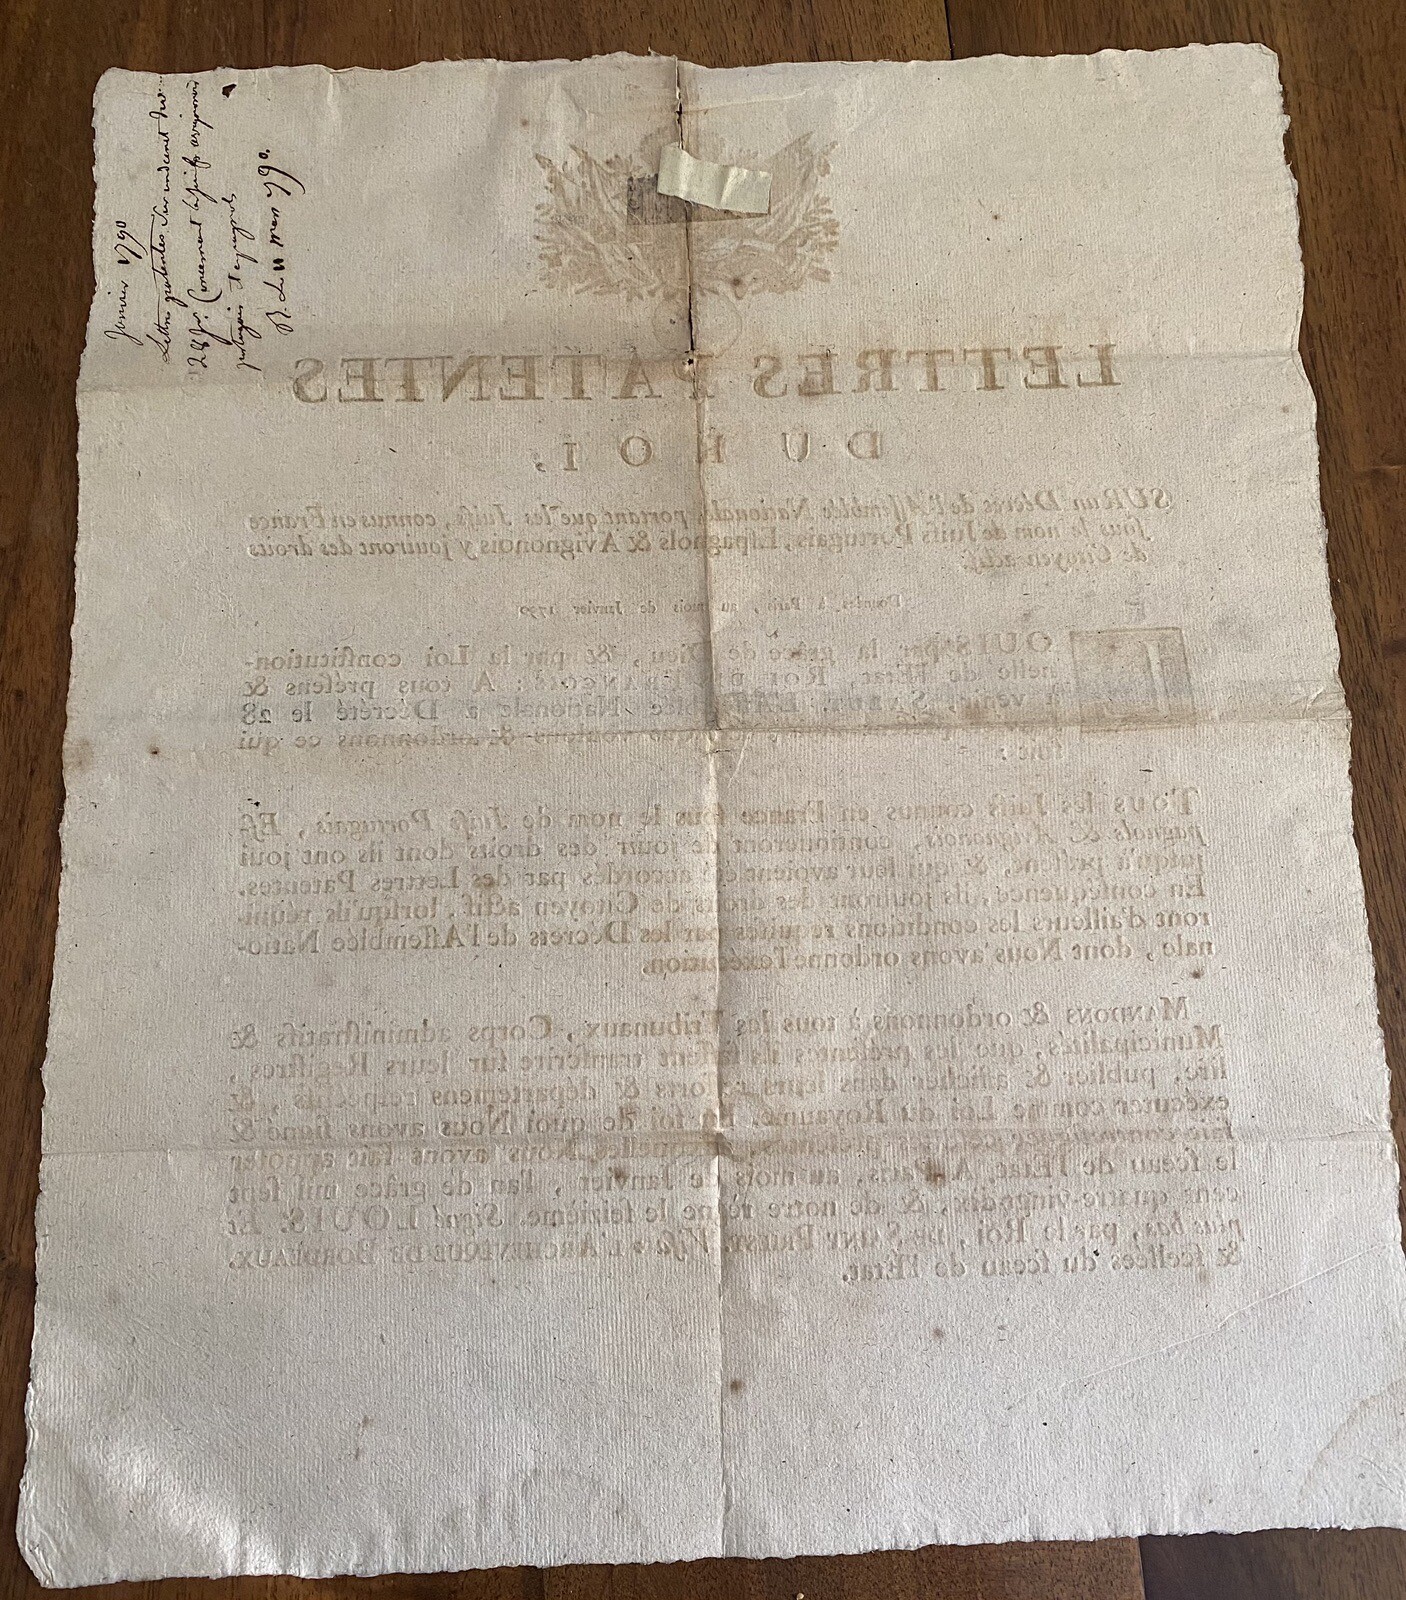 Janvier 1790
Lettre patentes sur un decret du
28 jr. Concernant les juifs avignonois
portugais et espagnols
R. Le 11 mars 1790.
LETTRES PATENTES
DU ROI,
SUR un Décret de l'Assemblée Nationale, portant que les Juifs, connus en France
sous le nom de Juifs Portugais, Espagnols & Avignonois y jouiront des droits
de Citoyen actif.
Données à Paris, au mois de Janvier 1790
LOUIS par la grâce de Dieu, & par la Loi constitution-
nelle de l'État, ROI DES FRANÇOIS: A tous présens &
à venir; SALUT. L'Assemblée Nationale a Décrété le 28
voulons & ordonnons ce qui
suit:
TOUS les Juifs connus en France sous le nom de Juifs Portugais, Es-
pagnols & Avignonois, continueront de jouir des droits dont ils ont joui
jusqu'à présent, & qui leur avoient été accordés par des Lettres Patentes.
En conséquence, ils jouiront des droits de Citoyen actif, lorsqu'ils réuni-
ront d'ailleurs les conditions requises par les Décrets de l'Assemblée Natio-
nale, dont Nous avons ordonné l'exécution.
MANDONS & ordonnons à tous les Tribunaux, Corps administratifs &
Municipalités, que les présentes ils fassent transcrire sur leurs Registres,
lire, publier & afficher dans leurs ressorts & départemens respectifs, &
exécuter comme Loi du Royaume. En foi de quoi Nous avons signé &
fait contresigner cesdites présentes, auxquelles Nous avons fait apposer
le sceau de l'État. A Paris, au mois de Janvier, l'an de grâce mil sept
cent quatre-vingt-dix, & de notre règne le seizième. Signé LOUIS. Et
plus bas, par le Roi, DE SAINT PRIEST. Visa L'ARCHEVEQUE DE BORDEAUX.
& scellées du sceau de l'État.